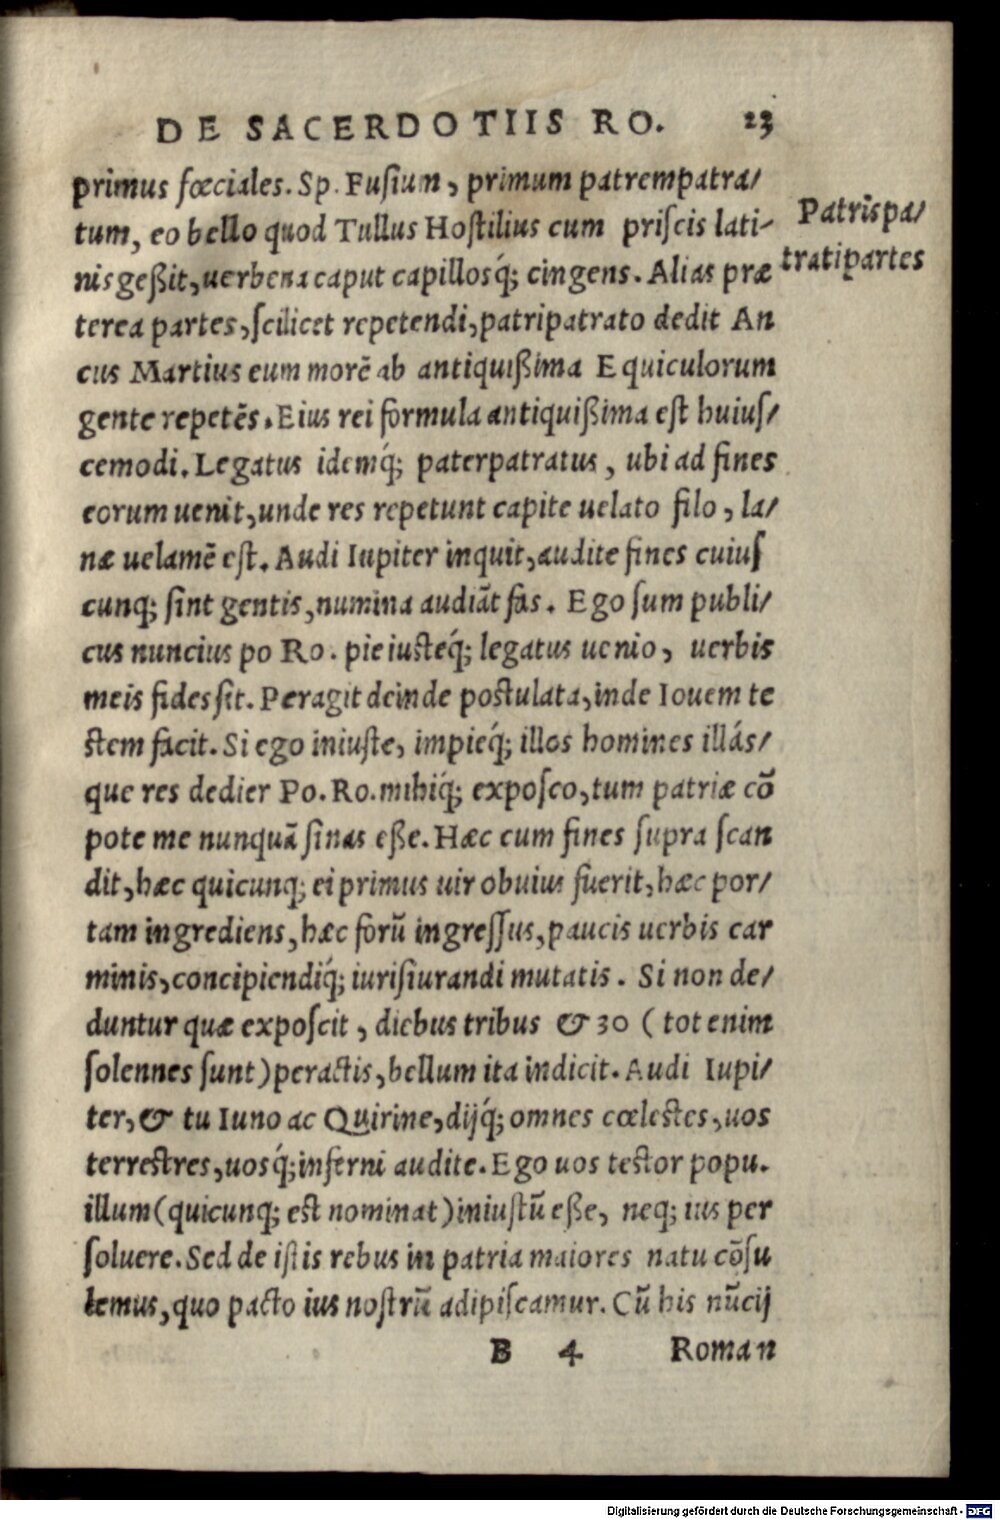 DE SACERDOTIIS RO. 23
primus fœciales. Sp. Fusium, primum patrempatra/
tum, eo bello quod Tullus Hostilius cum priscis lati-
nis geßit, uerbena caput capillosq́; cingens. Alias præ
terea partes, scilicet repetendi, patripatrato dedit An
cus Martius eum morē ab antiquißima Equiculorum
gente repetēs. Eius rei formula antiquißima est huius/
cemodi. Legatus idemq́; paterpatratus, ubi ad fines
eorum uenit, unde res repetunt capite uelato filo, la/
næ uelamē est. Audi Iupiter inquit, audite fines cuius
cunq; sint gentis, numina audiāt fas. Ego sum publi/
cus nuncius po Ro. pie iusteq́; legatus uenio, uerbis
meis fides sit. Peragit deinde postulata, inde Iouem te
stem facit. Si ego iniuste, impieq́; illos homines illás/
que res dedier Po. Ro. mihiq́; exposco, tum patriæ cō
pote me nunquā sinas eße. Hæc cum fines supra scan
dit, hæc quicunq; ei primus uir obuius fuerit, hæc por/
tam ingrediens, hæc forū ingressus, paucis uerbis car
minis, concipiendiq́; iurisiurandi mutatis. Si non de/
duntur quæ exposcit, diebus tribus & 30 (tot enim
solennes sunt) peractis, bellum ita indicit. Audi Iupi/
ter, & tu Iuno ac Quirine, dijq́; omnes cœlestes, uos
terrestres, uosq́; inferni audite. Ego uos testor popu.
illum (quicunq; est nominat) iniustū eße, neq; ius per
soluere. Sed de istis rebus in patria maiores natu cōsu
lemus, quo pacto ius nostrū adipiscamur. Cū his nūcij
B 4 Roman
Patris pa/
trati partes
Digitalisierung gefördert durch die Deutsche Forschungsgemeinschaft - DFG